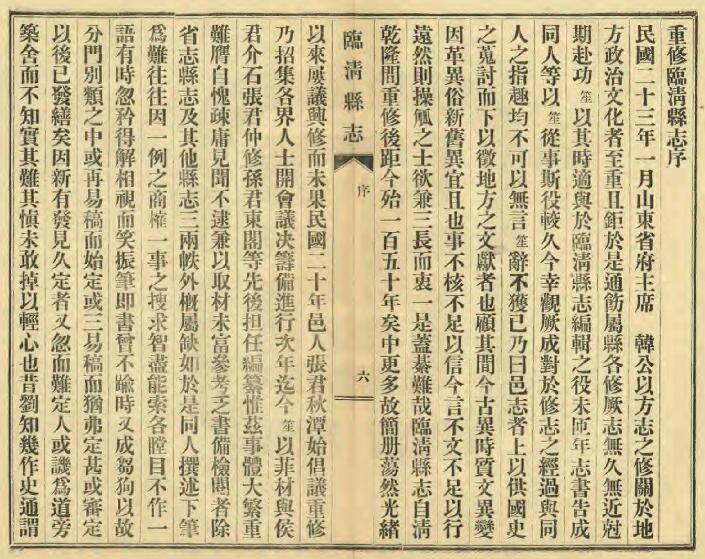 重修臨淸縣志序
民國二十三年一月山東省府主席　韓公以方志之修關於地
方政治文化者至重且鉅於是通飭屬縣各修厥志無久無近尅
期赴功笙以其時適與於臨淸縣志編輯之役未匝年志書告成
同人等以笙從事斯役較久今幸觀厥成對於修志之經過與同
人之指趣均不可以無言笙辭不獲已乃曰邑志者上以供國史
之蒐討而下以徵地方之文獻者也顧其間今古異時質文異變
因革異俗新舊異宜且也事不核不足以信今言不文不足以行
遠然則操觚之士欲兼三長而衷一是蓋綦難哉臨淸縣志自淸
乾隆間重修後距今殆一百五十年矣中更多故簡册蕩然光緖
臨淸縣志
序
六
以來屢議興修而未果民國二十年邑人張君秋潭始倡議重修
乃招集各界人士開會議決籌備進行次年迄今笙以菲材與侯
君介石張君仲修孫君東閣等先後担任編纂惟茲事體大繁重
難膺自愧疎庸見聞不逮兼以取材未富參考乏書備檢閱者除
省志縣志及其他縣志三兩帙外槪屬缺如於是同人撰述下筆
爲難往往因一例之商榷一事之搜求智盡能索各瞠目不作一
語有時忽矜得解相視而笑振筆卽書曾不踰時又成芻狗以故
分門別類之中或再易稿而始定或三易稿而猶弗定甚或審定
以後已發繕矣因新有發見久定者又忽而難定人或譏爲道旁
築舍而不知實其難其愼未敢掉以輕心也昔劉知幾作史通謂